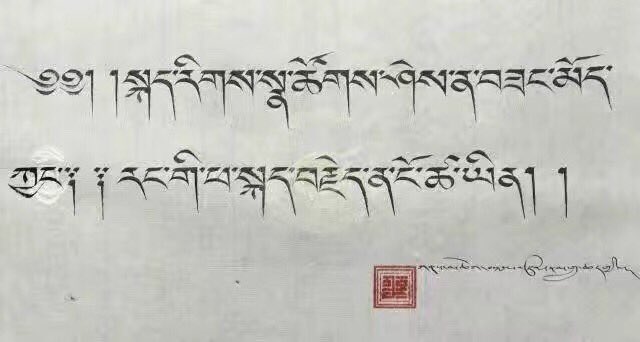 ༄༅། །སྐད་རིགས་སྣ་ཚོགས་ཤེས་ན་བཟང་མོད་
ཀྱང་༔ ༔ རང་གི་ཕ་སྐད་བརྗེད་ན་ངོ་ཚ་ཡིན། །